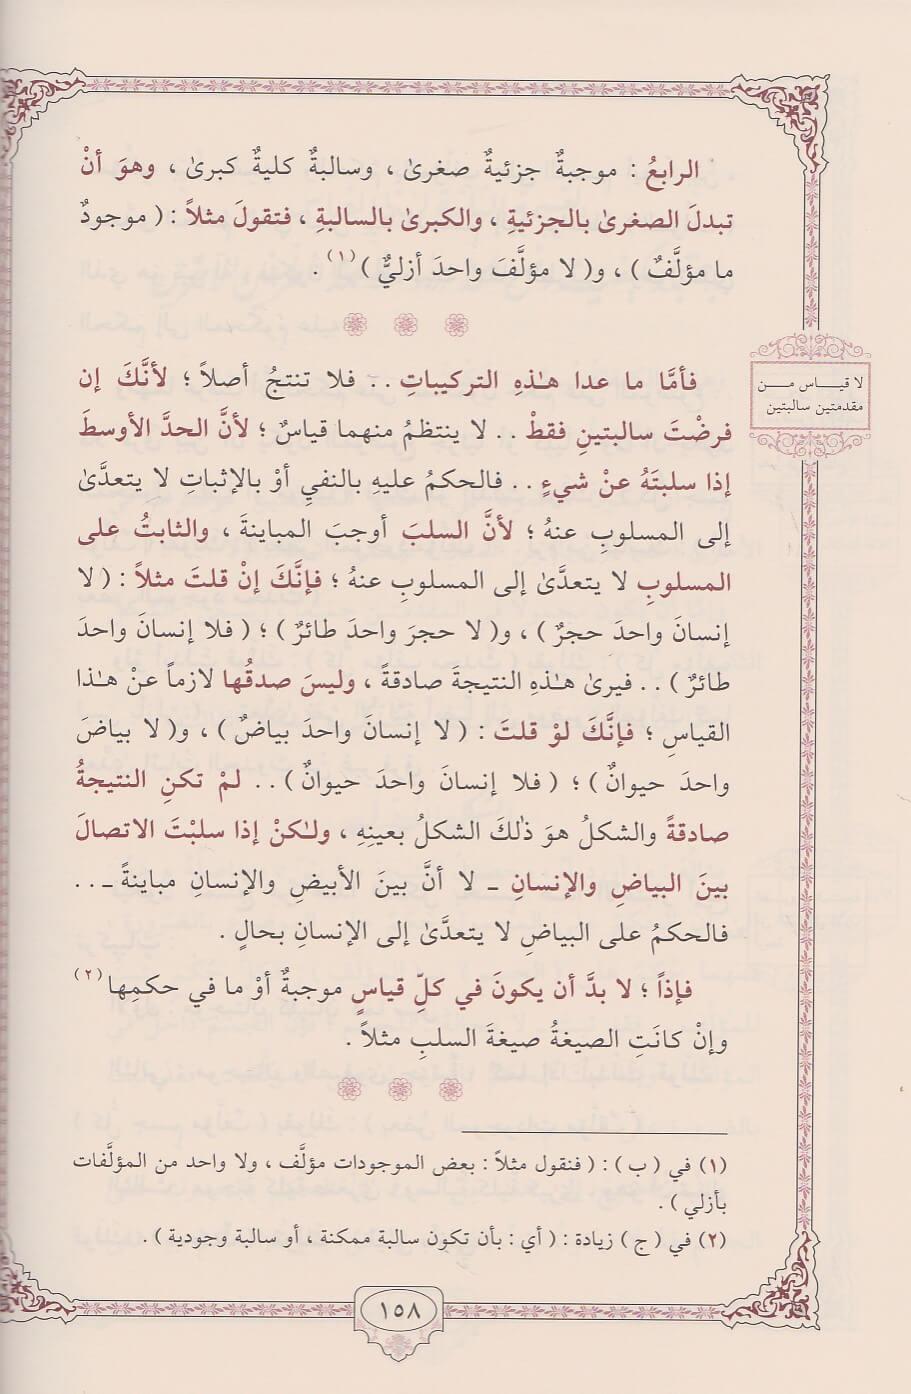 الرابعُ : موجبةٌ جزئيةٌ صغرىٰ ، وسالبةٌ كليةٌ كبرىٰ ، وهوَ أنْ
تبدلَ الصغرىٰ بالجزئيةِ ، والكبرىٰ بالسالبةِ ، فتقولَ مثلاً : ( موجودٌ
ما مؤلَّفٌ ) ، و( لا مؤلَّفَ واحدَ أزليٌّ )(١) .
لا قيـاس مـن
مقدمتين سالبتين
فأمَّا ما عدا هـٰذهِ التركيباتِ .. فلا تنتجُ أصلاً ؛ لأنَّكَ إن
فرضْتَ سالبتينِ فقطْ .. لا ينتظمُ منهما قياسٌ ؛ لأنَّ الحدَّ الأوسطَ
إذا سلبتَهُ عنْ شيءٍ .. فالحكمُ عليهِ بالنفيِ أوْ بالإثباتِ لا يتعدَّىٰ
إلى المسلوبِ عنهُ ؛ لأنَّ السلبَ أوجبَ المباينةَ ، والثابتُ على
المسلوبِ لا يتعدَّىٰ إلى المسلوبِ عنهُ ؛ فإنَّكَ إنْ قلتَ مثلاً : ( لا
إنسانَ واحدَ حجرٌ ) ، و( لا حجرَ واحدَ طائرٌ ) ؛ ( فلا إنسانَ واحدَ
طائرٌ ) .. فيرىٰ هـٰذهِ النتيجةَ صادقةً ، وليسَ صدقُها لازماً عنْ هـٰذا
القياسِ ؛ فإنَّكَ لوْ قلتَ : ( لا إنسانَ واحدَ بياضٌ ) ، و( لا بياضَ
واحدَ حيوانٌ ) ؛ ( فلا إنسانَ واحدَ حيوانٌ ) .. لمْ تكنِ النتيجةُ
صادقةً والشكلُ هوَ ذٰلكَ الشكلُ بعينِهِ ، ولـٰكنْ إذا سلبْتَ الاتصالَ
بينَ البياضِ والإنسانِ ـ لا أنَّ بينَ الأبيضِ والإنسانِ مباينةً ـ ..
فالحكمُ على البياضِ لا يتعدَّىٰ إلى الإنسانِ بحالٍ .
فإذاً ؛ لا بدَّ أن يكونَ في كلِّ قياسٍ موجبةٌ أوْ ما في حكمِها(٢)
وإنْ كانَتِ الصيغةُ صيغةَ السلبِ مثلاً .
(١) في ( ب ) : ( فنقول مثلاً : بعض الموجودات مؤلَّف ، ولا واحد من المؤلَّفات
بأزلي ) .
(٢) في ( ج ) زيادة : ( أي : بأن تكون سالبة ممكنة ، أو سالبة وجودية ) .
١٥٨